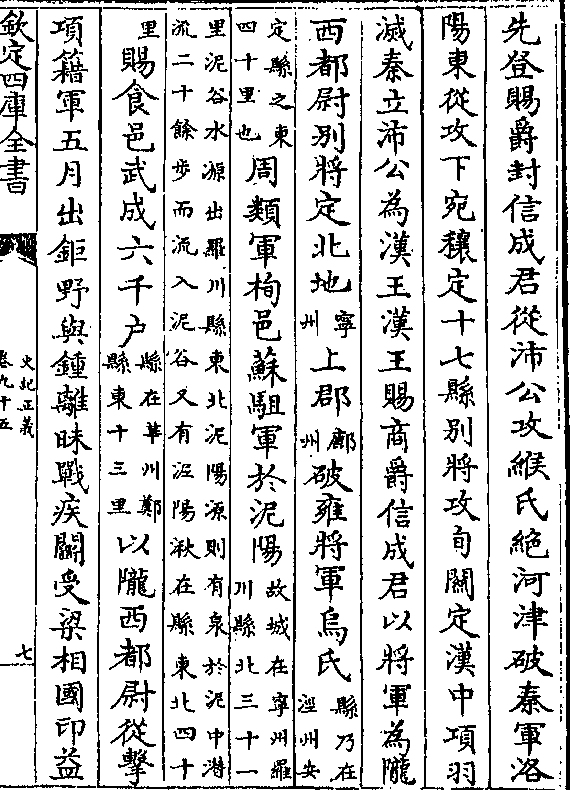 先登賜爵封信成君從沛公攻緱氏絶河津破秦軍洛
陽東從攻下宛穰定十七縣别將攻旬關定漢中項羽
滅秦立沛公為漢王漢王賜商爵信成君以將軍為隴
西都尉别將定北地寧州上郡鄜州破雍將軍烏氏縣乃在涇州安
定縣之東四十里也周類軍栒邑蘇駔軍於泥陽故城在寧州羅川縣北三十一
里泥谷水源出羅川縣東北泥陽源則有泉於泥中潛流二十餘步而流入泥谷又有泾陽湫在縣東北四十
里賜食邑武成六千户縣在華州鄭縣東十三里以隴西都尉從擊
項籍軍五月出鉅野與鍾離眛戰疾鬭受梁相國印益
欽定四庫全書
史記正義
卷九十五
七